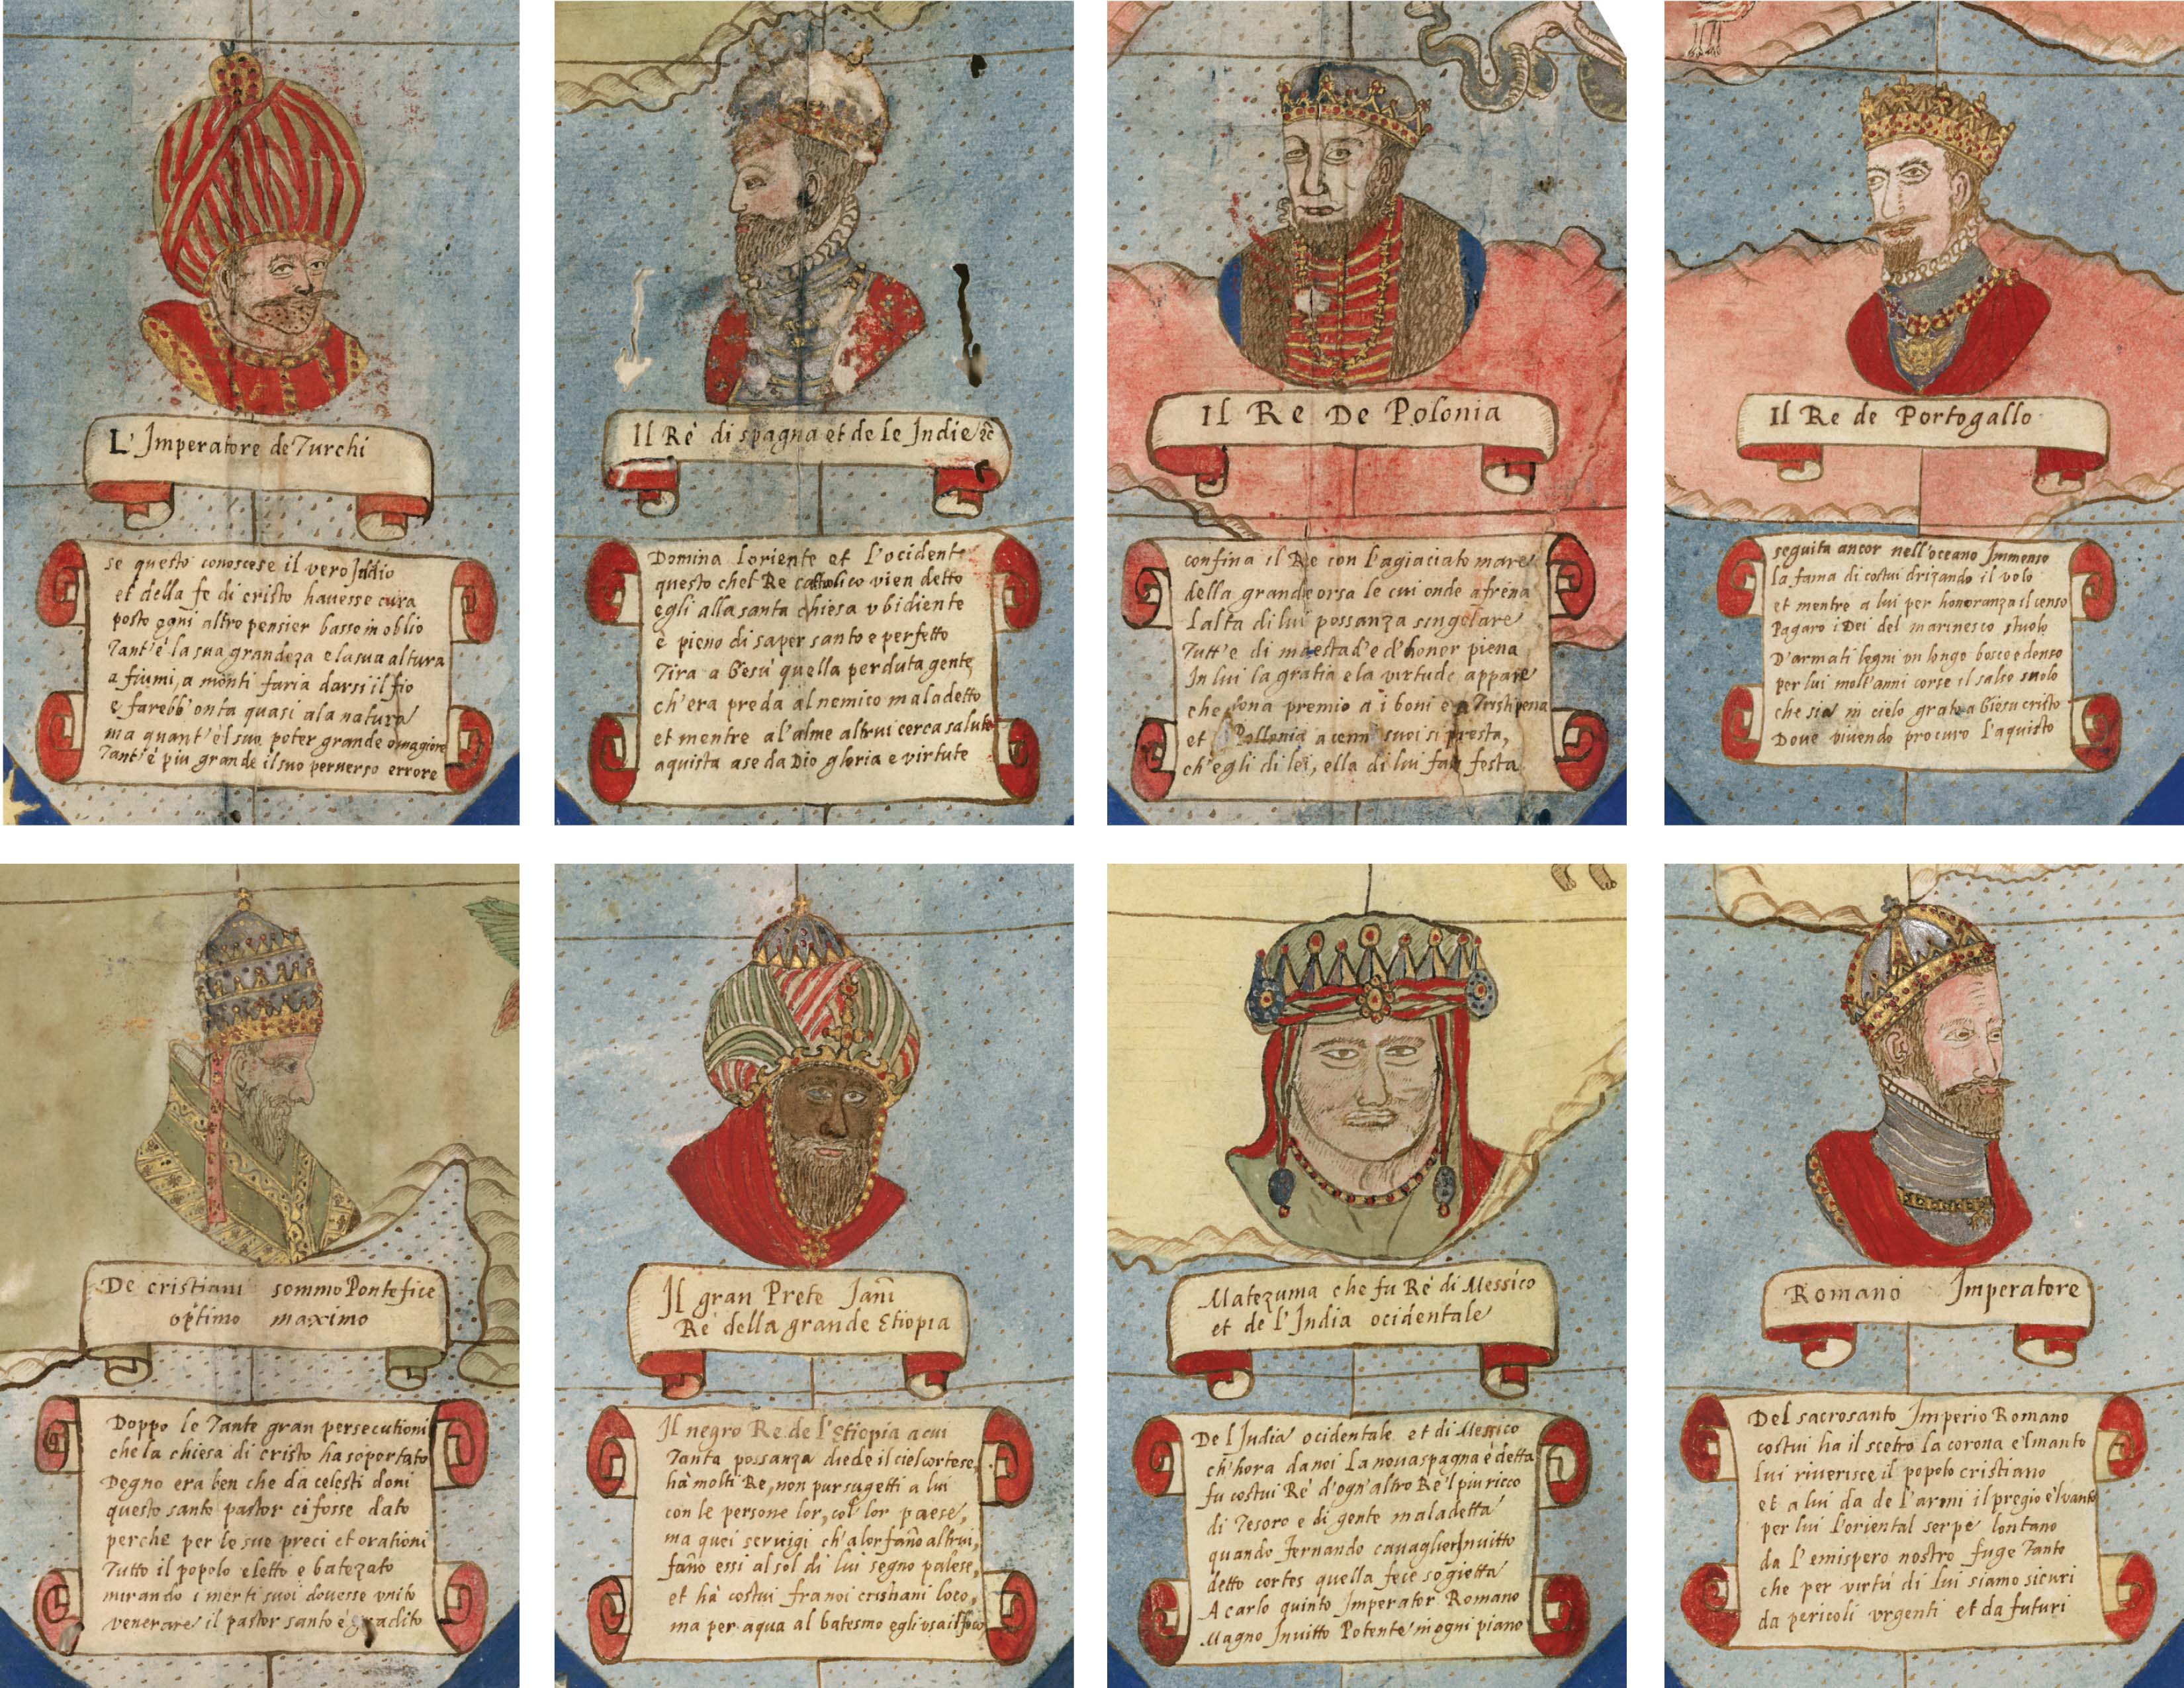 L' Imperatore de Turchi
se questo conoscese il vero Iddio
et della fe di cristo havesse cura
posto ogni altro pensier basso in oblio
Tant' è la sua grandeza e la sua altura
a fiumi, a monti faria darsi il fio
e farebb' onta quasi a la natura
ma quant' è l suo poter grande o magiore
Tant' è piu grande il suo perverso errore
Il Rè di spagna et de le Indie &c
Domina l'oriente et l'ocidente
questo che l Re cattolico vien detto
egli alla santa chiesa ubidiente
è pieno di saper santo e perfetto
Tira a Gesù quella perduta gente
ch'era preda al nemico maladetto
et mentre a l'alme altrui cerca salute
aquista a se da Dio gloria e virtute
Il Re De Polonia
confina il Re con l'agiaciato mare
della grande orsa le cui onde afrena
l alta di lui possanza singolare
Tutt'e di maestad'e d'honor piena
In lui la gratia e la virtude appare
che dona premio a i boni e a Tristi pena
et Pollonia a cenni suoi si presta,
ch'egli di lei, ella di lui fan festa
Il Re de Portogallo
seguita ancor nell'oceano Immenso
la fama di costui drizando il volo
et mentre a lui per honoranza il censo
Pagaro i Dei del marinesco stuolo
D'armati legni un longo bosco e denso
per lui molt'anni corse il salso suolo
che sia in cielo grato a Giesu cristo
Dove vivendo procuro l'aquisto
De cristiani sommo Pontefice
optimo maximo
Doppo le Tante gran persecutioni
che la chiesa di cristo ha soportato
Degno era ben che da celesti doni
questo santo pastor ci fosse dato
perche per le sue preci et orationi
Tutto il popolo eletto e batezato
mirando i merti suoi dovesse unito
venerare il pastor santo è gradito
Il gran Prete Janĩ
Re della grande Etiopia
Il negro Re de l'Etiopia a cui
Tanta possanza diede il ciel cortese,
hà molti Re, non pur sugetti a lui
con le persone lor, col' lor paese,
ma quei servigi ch'a lor fano altrui,
fano essi al sol di lui segno palese,
et hà costui fra noi cristiani loco,
ma per aqua al batesmo egli usa il foco
Matezuma che fu Rè di Messico
et de l'India ocidentale
De l India ocidentale et di Messico
ch'hora da noi la nova spagna è detta
fu costui Rè d'ogn'altro Rè l piu ricco
di Tesoro e di gente maladetta
quando Fernando cavaglier Invitto
detto cortes quella fece sogietta
A carlo quinto Imperator Romano
Magno Invitto Potente in ogni piano
Romano Imperatore
Del sacrosanto Imperio Romano
costui ha il scetro la corona e'l manto
lui riverisce il popolo cristiano
et a lui da de l'armi il pregio è'l vanto
per lui l'oriental serpe lontano
da l'emispero nostro fuge Tanto
che per virtù di lui siamo sicuri
da pericoli urgenti et da futuri